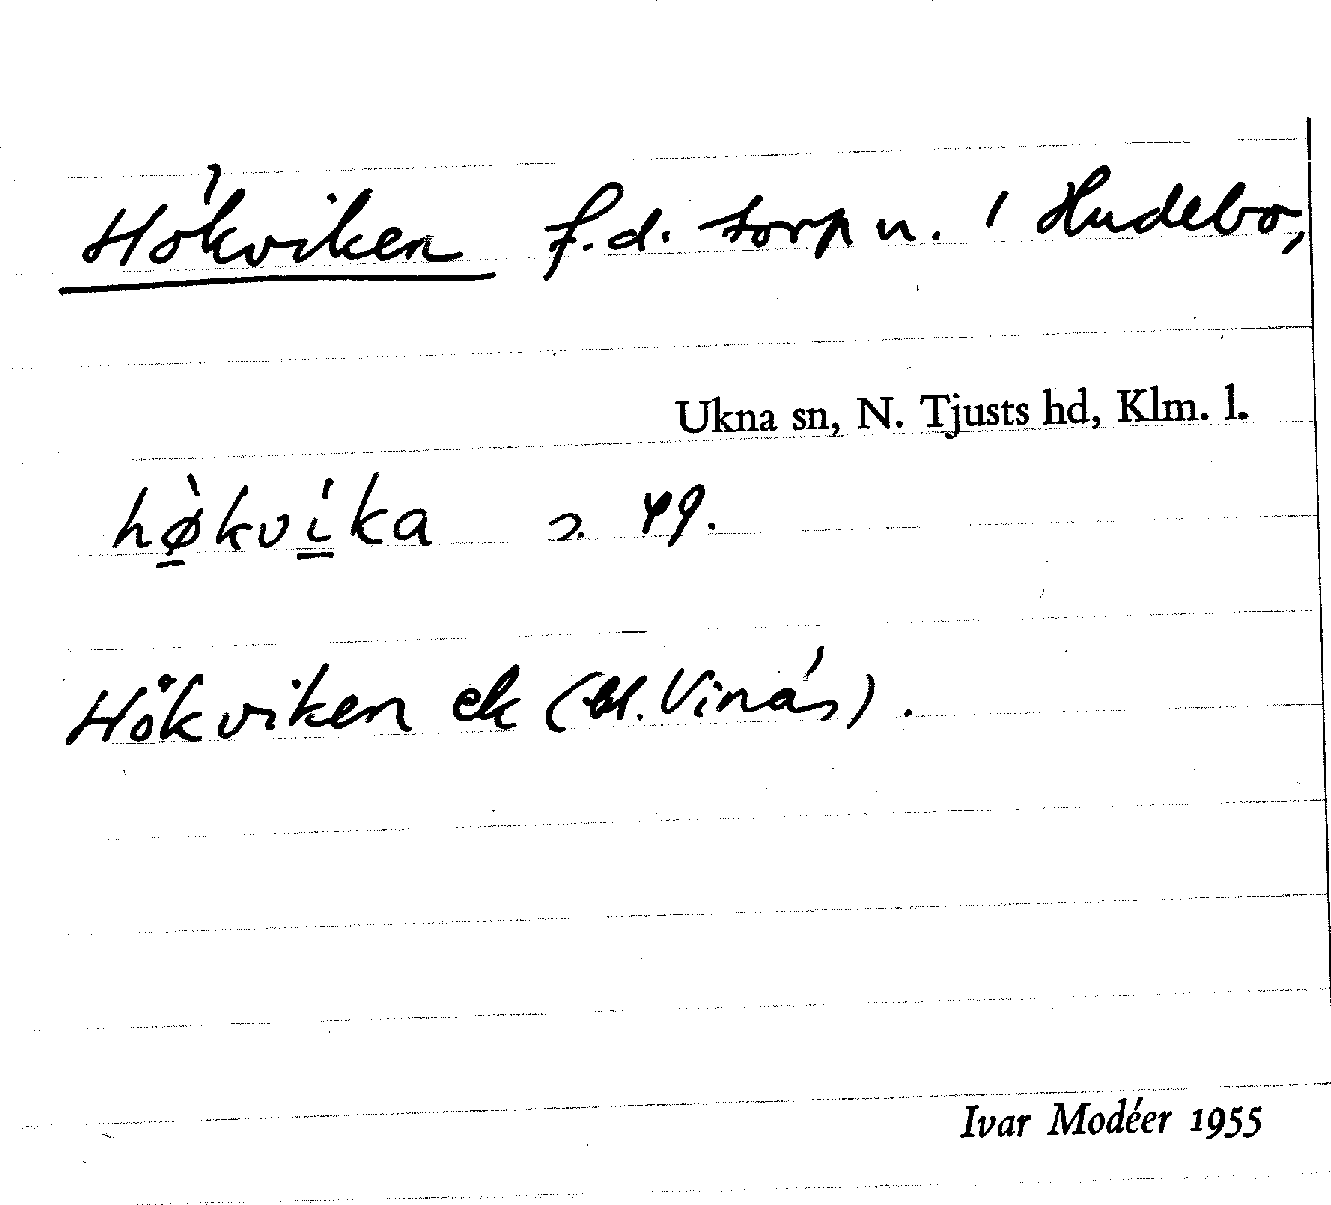 Hökviken f.d. torp n. i Hudebo,
Ukna sn, N. Tjusts hd, Klm. l.
hø̀kvíka
Hökviken ek (bl. Vinäs).
Ivar Modéer 1955